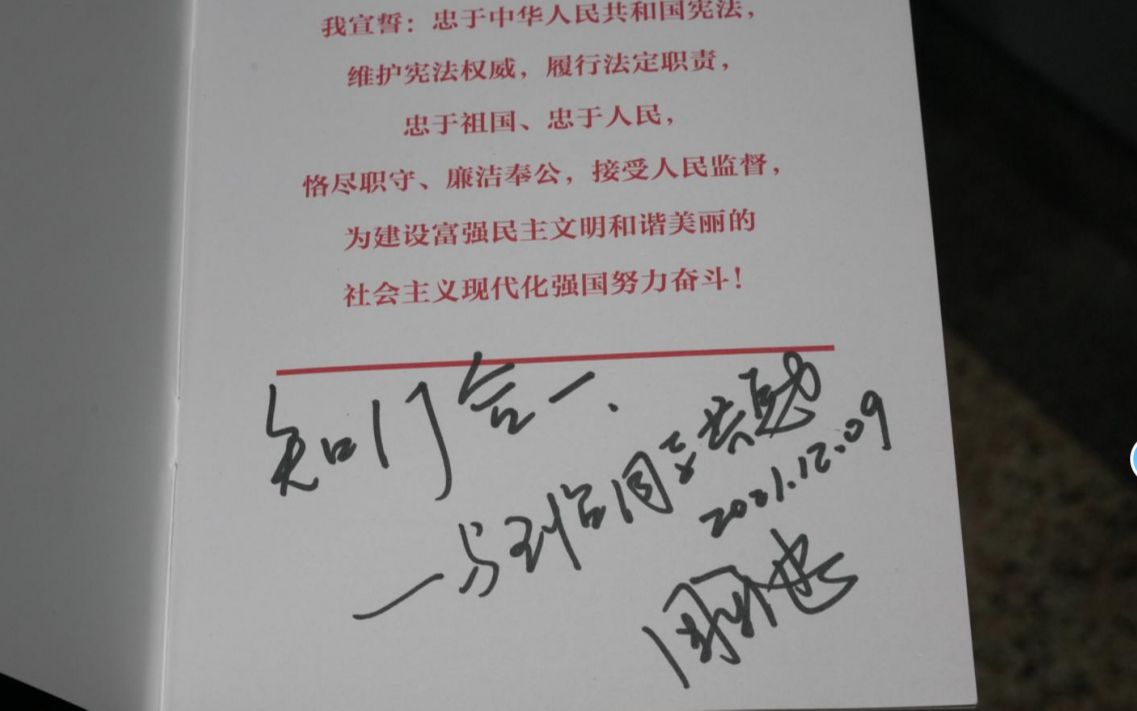 我宣誓：忠于中华人民共和国宪法，
维护宪法权威，履行法定职责，
忠于祖国、忠于人民，
恪尽职守、廉洁奉公，接受人民监督，
为建设富强民主文明和谐美丽的
社会主义现代化强国努力奋斗！
知行合一.
—与 同 共勉
2021.12.09